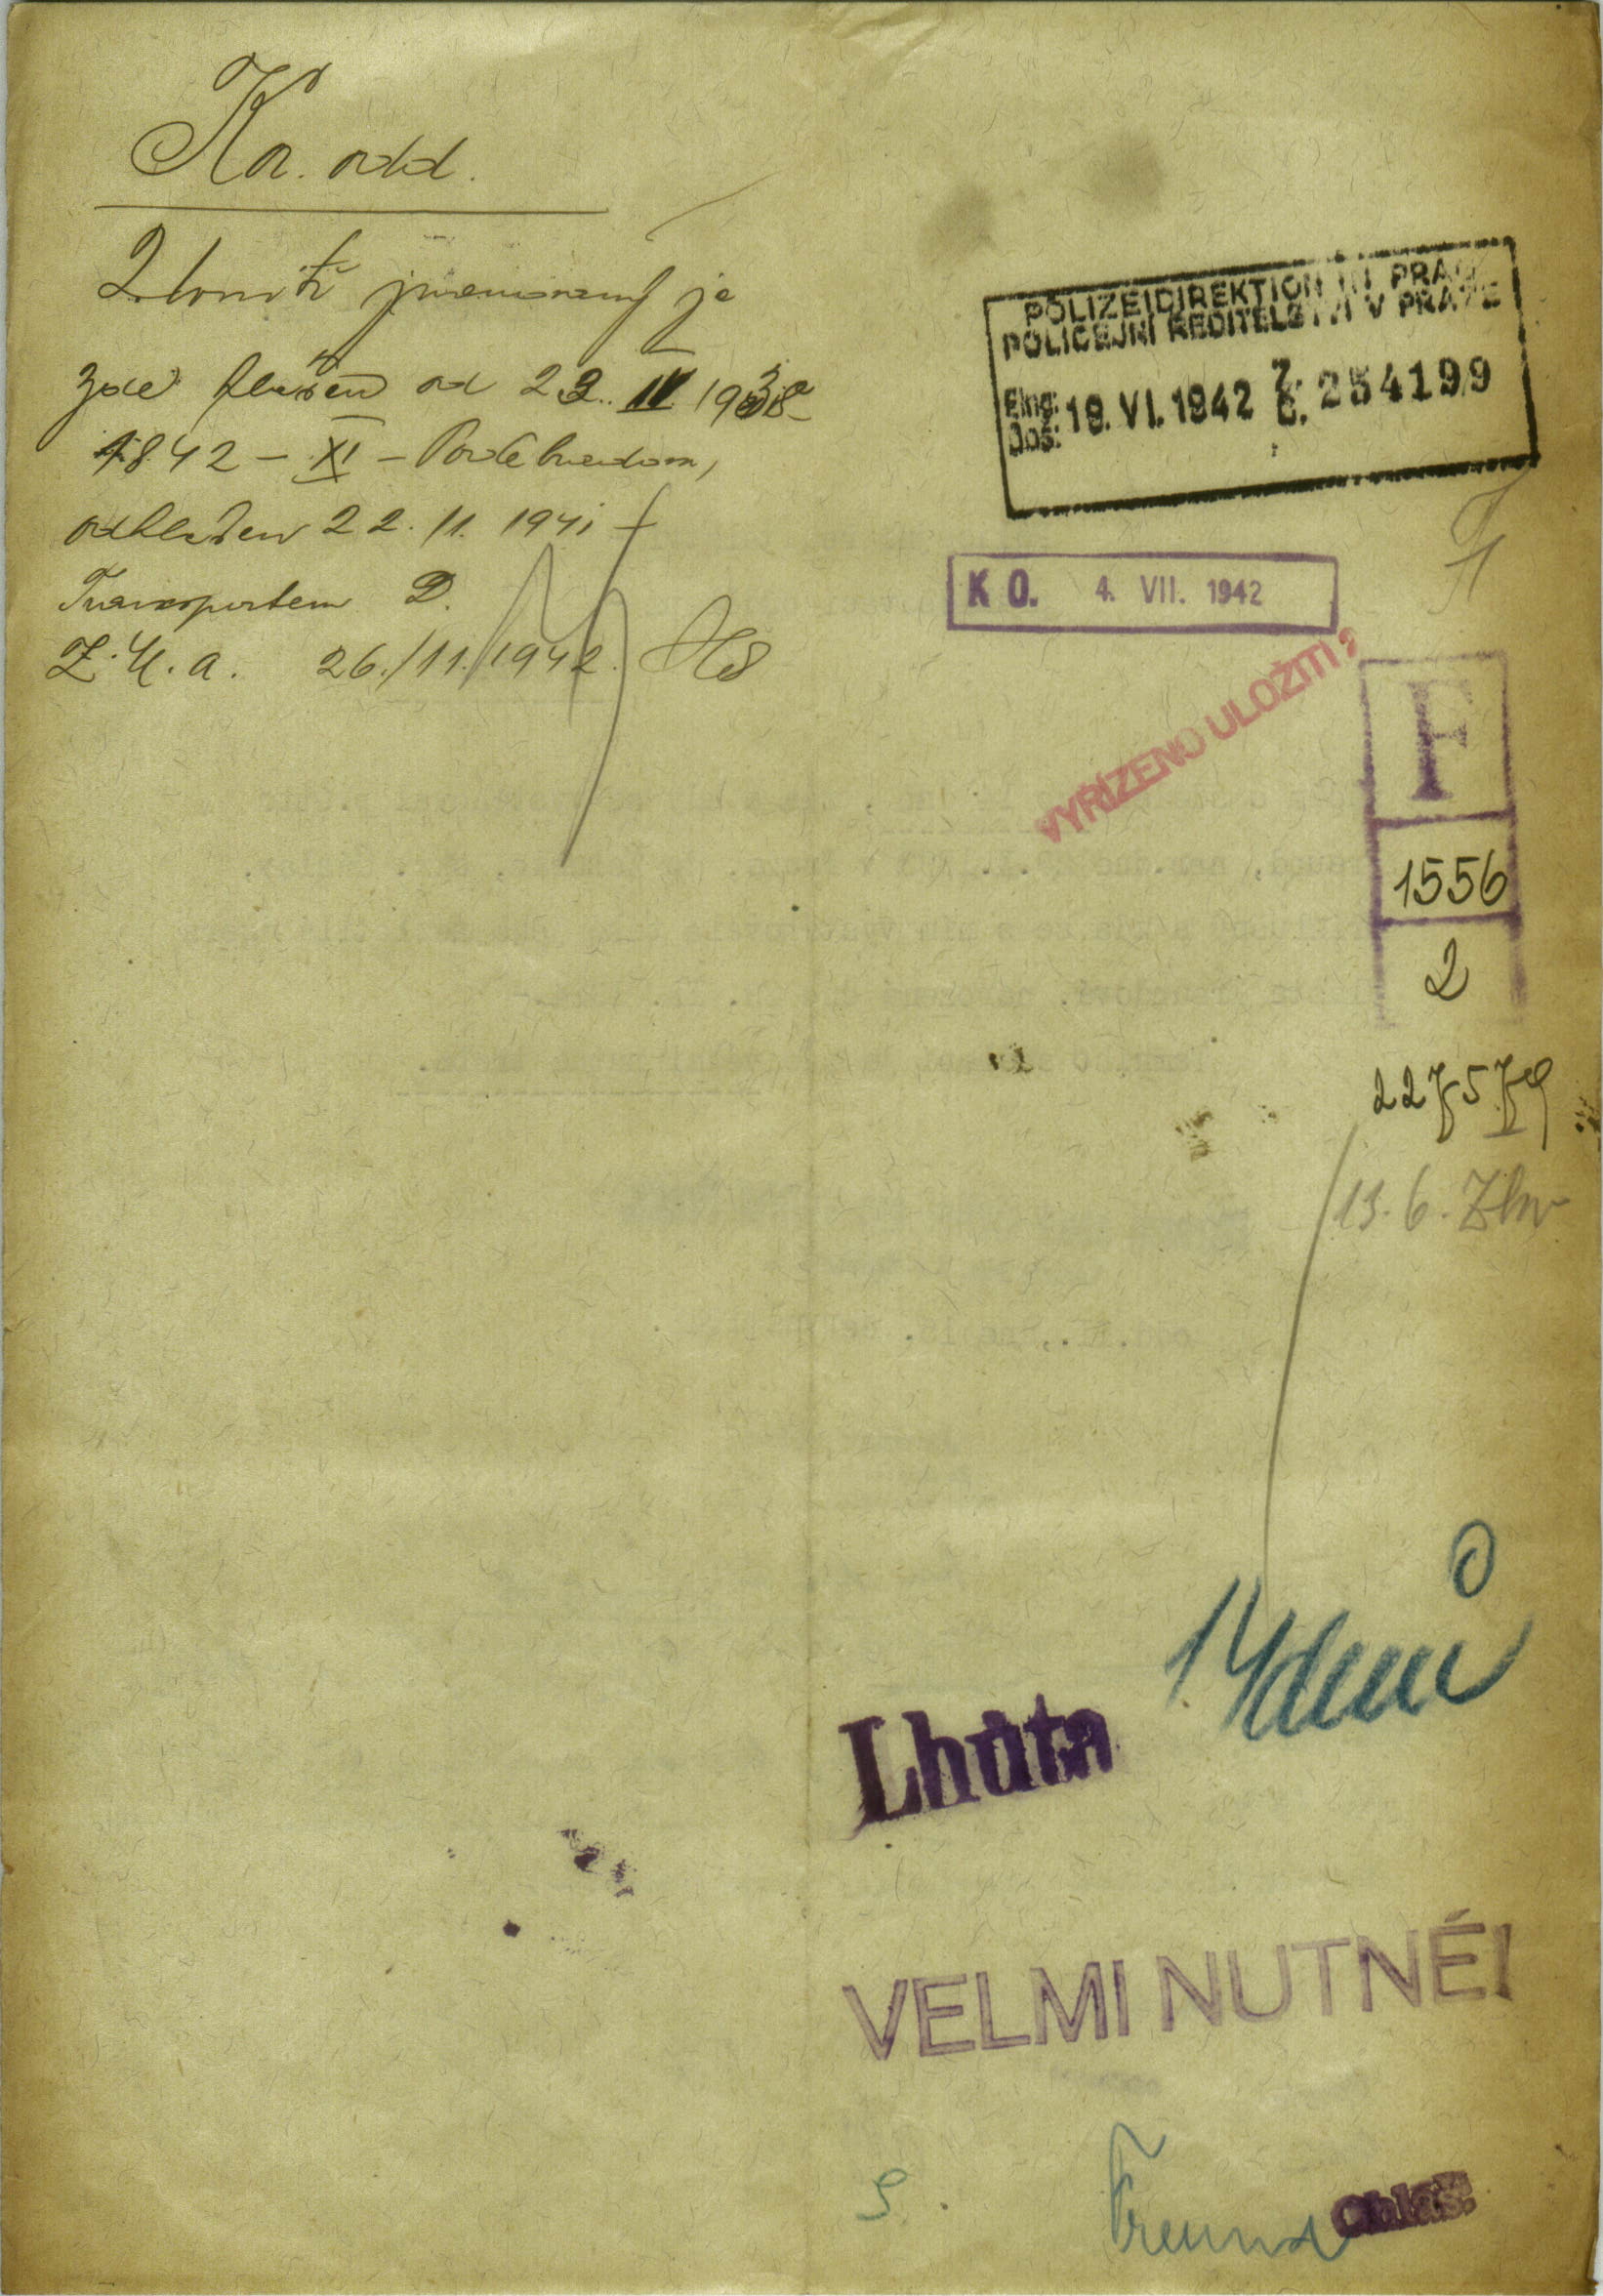 Kr. odd.
jmenovaný je
zde hlášen od
1842 – XI – Poděbradova,
odhlášen 22. 11. 1941
Transportem D.
Z. U. a. 26./11. 1942.
POLIZEIDIREKTION IN PRAG
POLICEJNÍ ŘEDITELSTVÍ V PRAZE
Eing: Doš: 18. VI. 1942 Z. Č. 254199
K O. 4. VII. 1942
VYŘÍZENO ULOŽITI
F
1556
2
227579
13. 6.
14 dnů
Lhůta
VELMI NUTNÉ!
S. Freund Ohlaš.